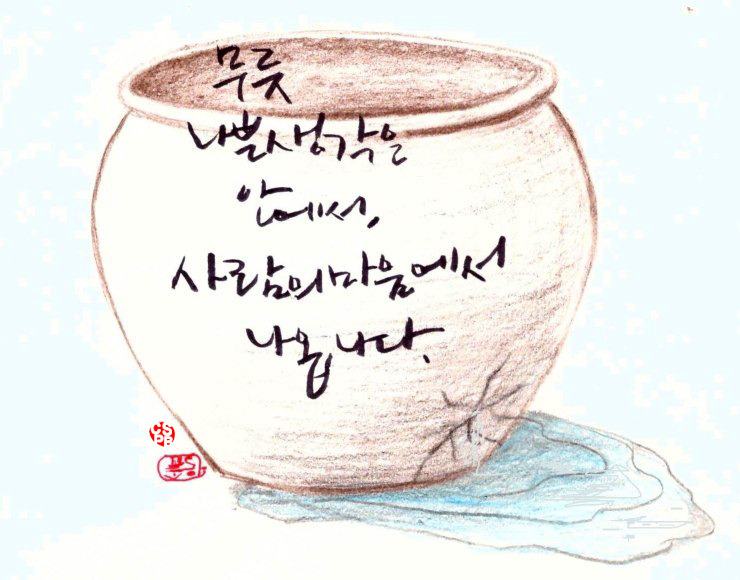 무릇
나쁜생각은
안에서,
사람의마음에서
나옵니다.
CS
PB